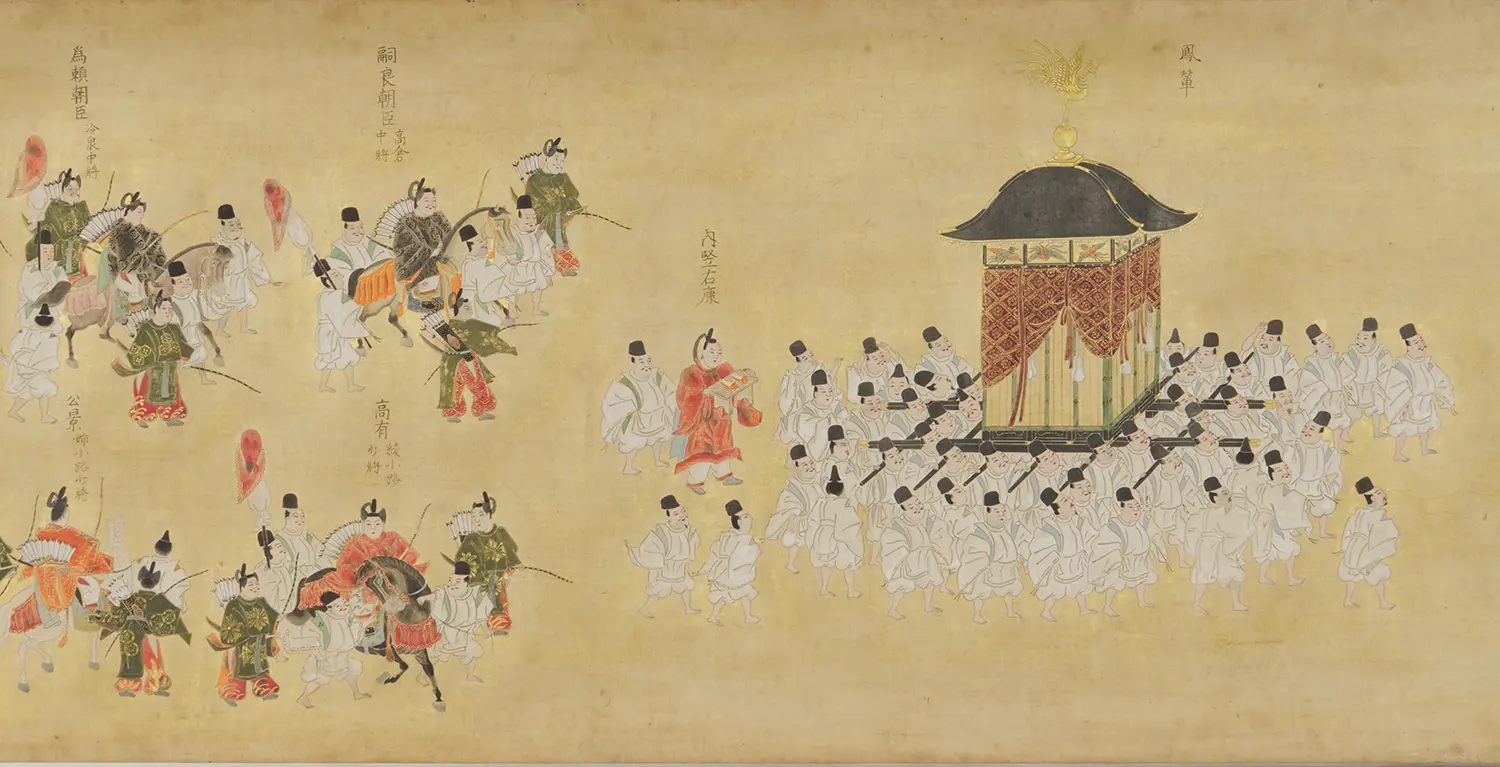 鳳輦
内竪右康
嗣良朝臣
高倉
中將
高有
綾小路
少將
爲頼朝臣
冷泉中將
公景
姉小路少將